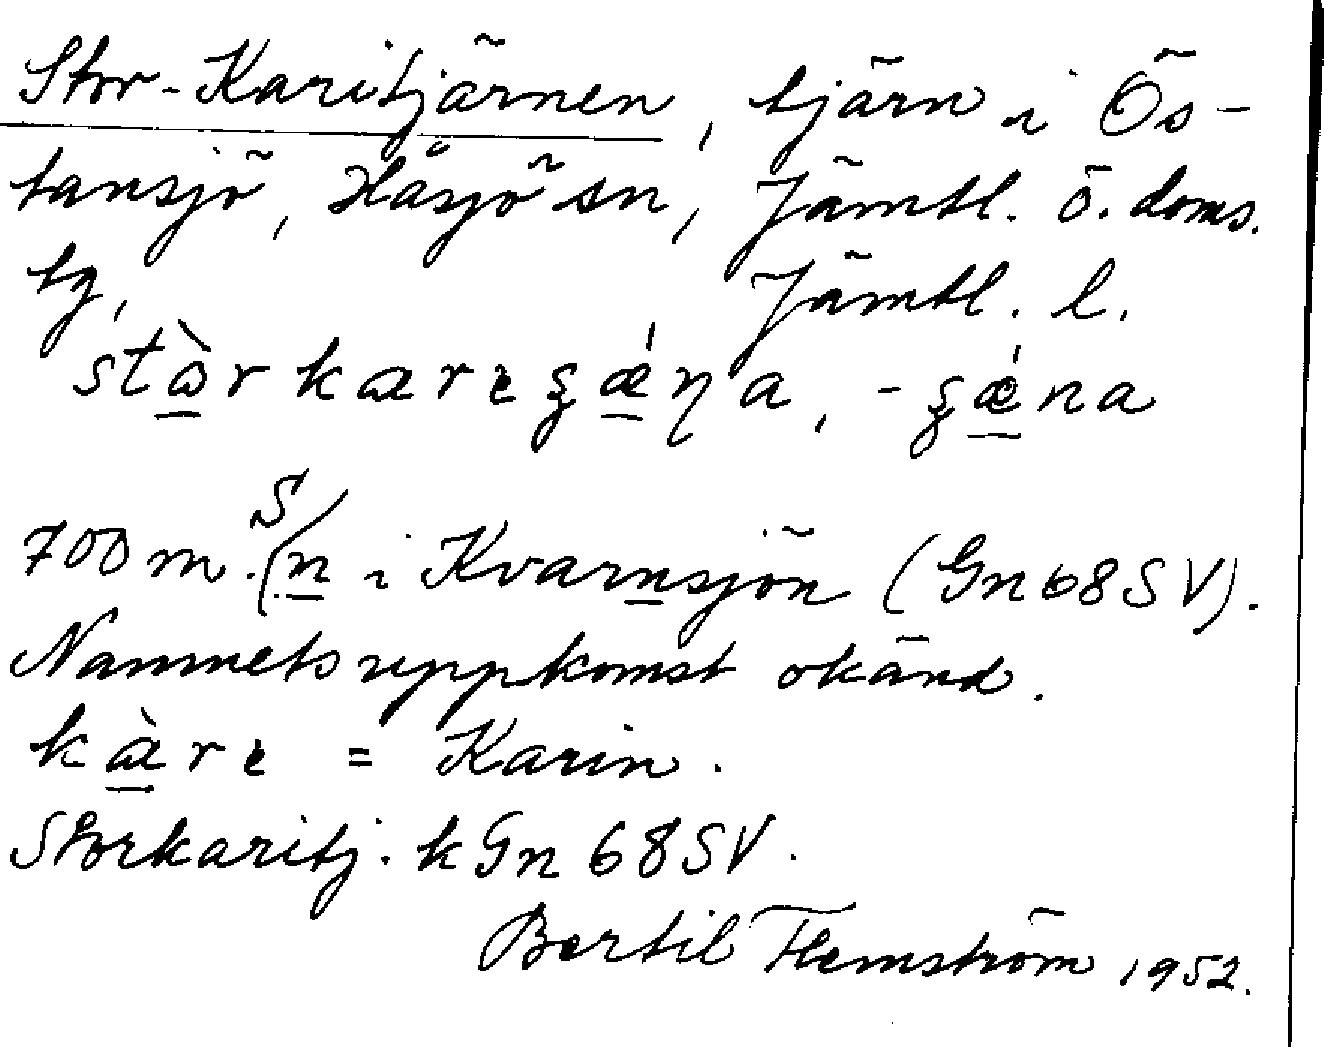 Stor-Karitjärnen, tjärn i Ös-
tansjö, Håsjö sn, Jämtl. ö. doms.
tg, Jämtl. l.
700 m. S/n i Kvarnsjön (Gn 68 SV).
Namnets uppkomst okänd.
= Karin.
Storkaritj. k Gn 68 SV.
Bertil Flemström 1952.